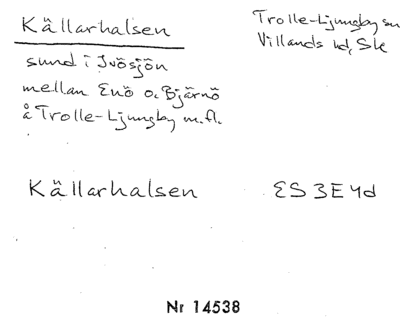 Källarhalsen
Trolle-Ljungby sn
Villands hd, Sk
sund i Ivösjön
mellan Enö o. Bjärnö
å Trolle-Ljungby m.fl.
Källarhalsen
ES 3E 4d
Nr 14538